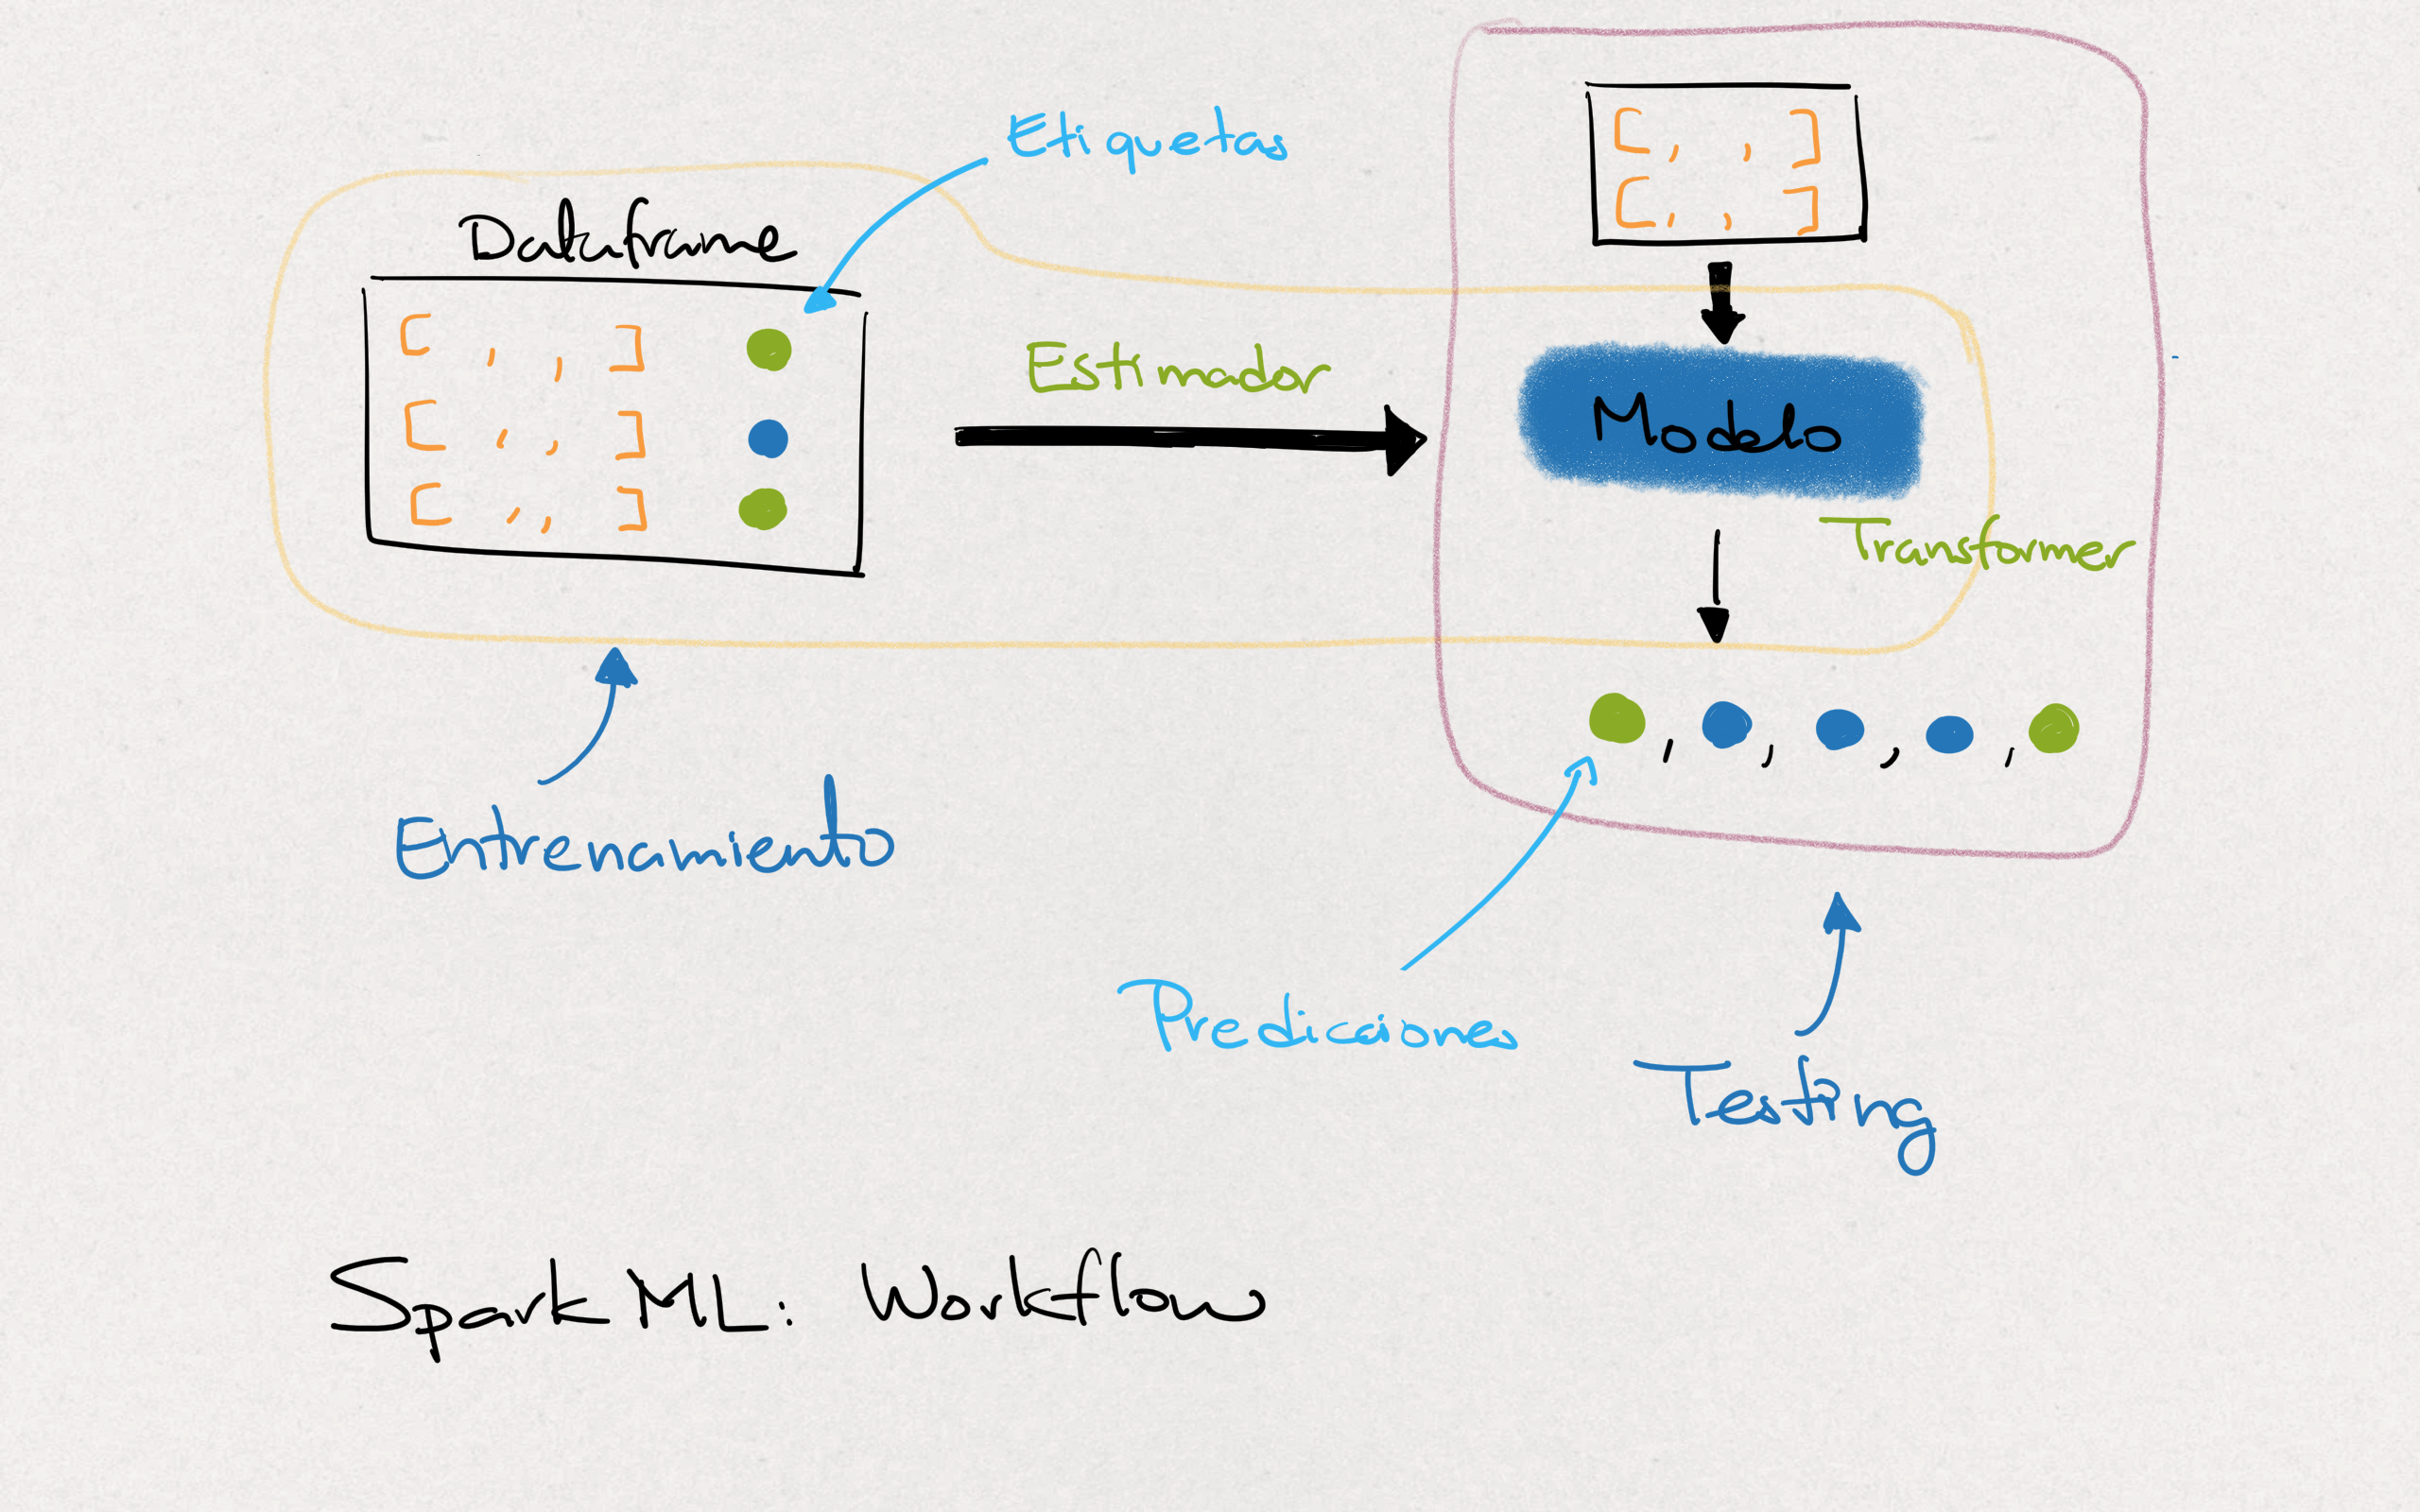 Etiquetas
Dataframe
[ , , ]
[ , , ]
[ , , ]
Estimador
[ , , ]
[ , , ]
Modelo
Transformer
, , , ,
Entrenamiento
Predicciones
Testing
Spark ML: Workflow